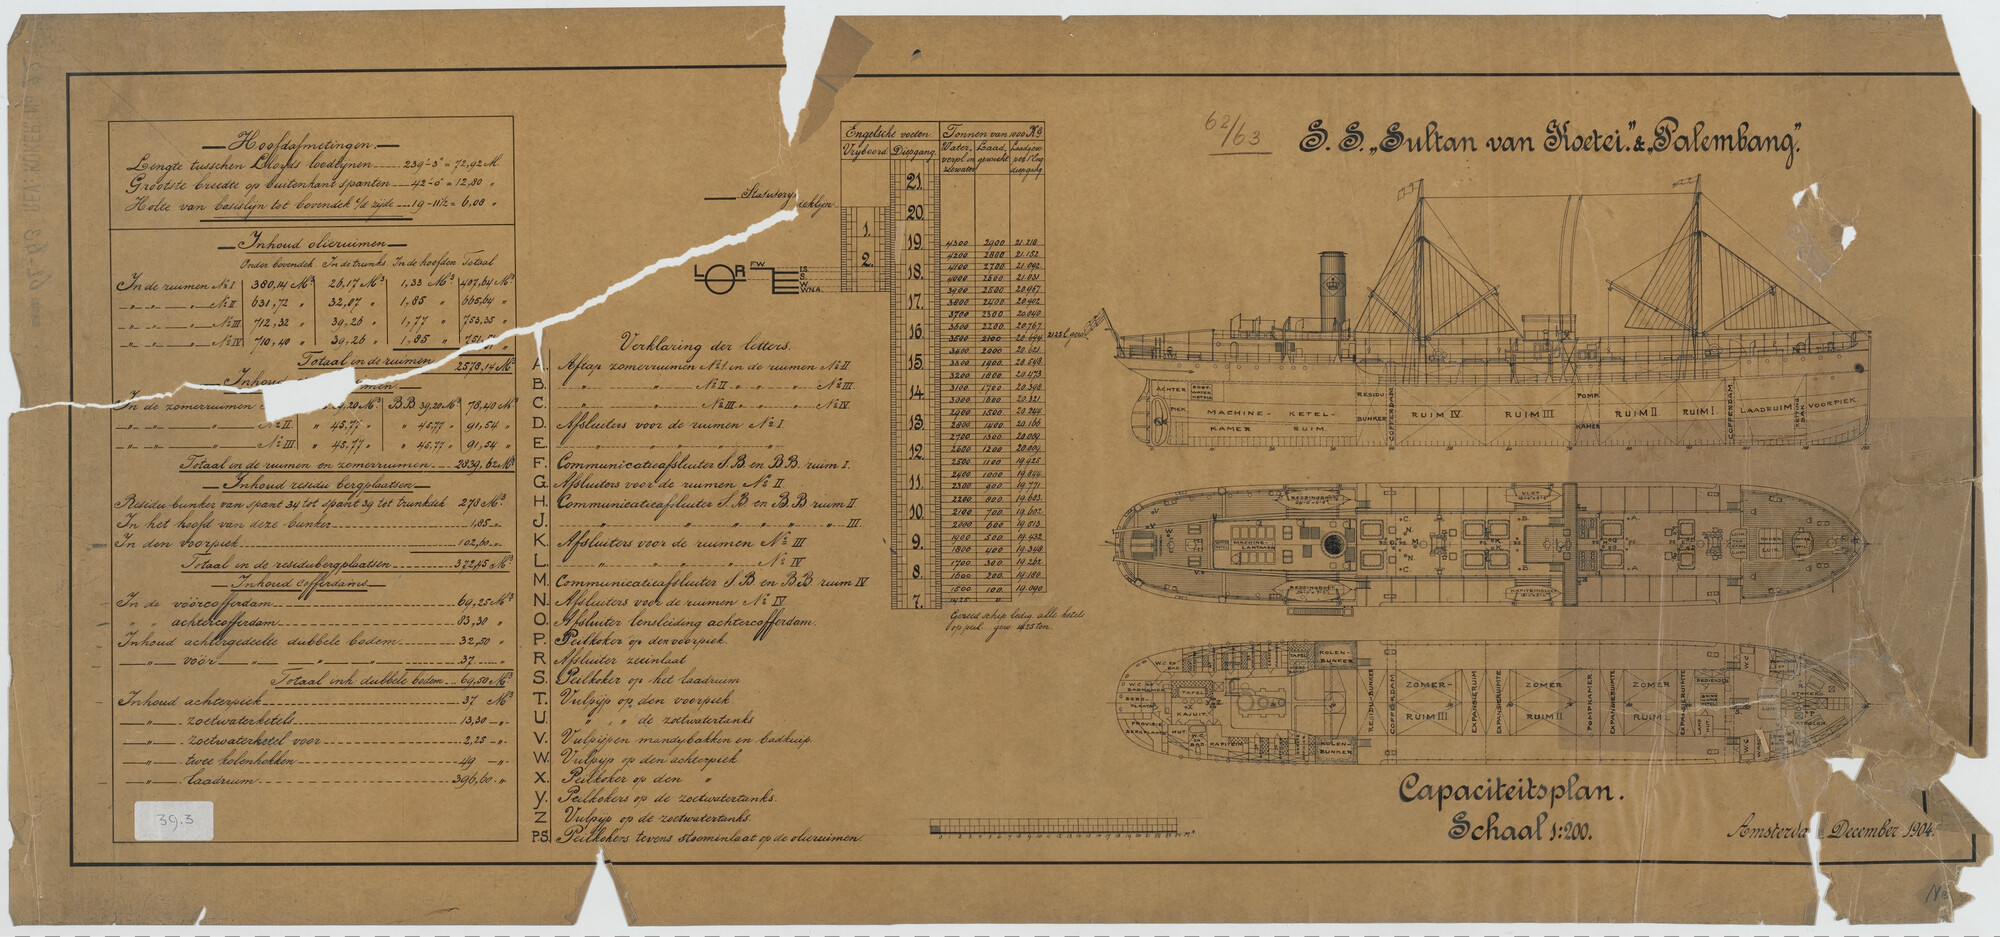 62/63
S.S. „Sultan van Koetei." & „Palembang".
Hoofdafmetingen.
Lengte tusschen Lloyds loodlynen 239'-3" = 72,92 M
Grootste breedte op buitenkant spanten 42'-0" = 12,80 "
Holte van basislyn tot bovendek i/d zyde 19-11½ = 6,08 "
Inhoud olieruimen
Onder bovendek In de trunks. In de hoofden Totaal
In de ruimen No I 380,14 M³ 26,17 M³ 1,33 M³ 407,64 M³
" " " No II 631,72 " 32,07 " 1,85 " 665,64 "
" " " No III 712,32 " 39,26 " 1,77 " 753,35 "
" " " No IV 710,40 " 39,26 " 1,85 "
Totaal in de ruimen 2578,14 M³
In de zomerruimen 39,20 M³ B.B. 39,20 M³ 78,40 M³
" " " No II. " 45,77 " " 45,77 " 91,54 "
" " " No III " 45,77 " " 45,77 " 91,54 "
Totaal in de ruimen en zomerruimen. 2839,62 M³
Inhoud residu bergplaatsen
Residu bunker van spant 34 tot spant 39 tot trunkdek 278 M³
In het hoofd van deze bunker 1,85 "
In den voorpiek 102,60 "
Totaal in de residubergplaatsen 372,45 M³
Inhoud cofferdams
In de vóórcofferdam 69,25 M³
" " achtercofferdam 83,30 "
Inhoud achtergedeelte dubbele bodem 32,50 "
" vóór " " " 37 "
Totaal inh dubbele bodem 69,50 M³
Inhoud achterpiek 37 M³
" zoetwaterketels 13,30 "
" zoetwaterketel voor 2,25 "
" twee kolenhokken 49 "
" laadruim 396,60 "
39.3
Statutory deklyn.
L R
FW
I.S.
S.
W
W.N.A.
Verklaring der letters.
A. Aftap zomerruimen No I. in de ruimen No II
B. " " No II " " " No III
C. " " No III " " " No IV
D. Afsluiters voor de ruimen No I
E. " " " "
F. Communicatieafsluiter S.B en B.B. ruim I.
G. Afsluiters voor de ruimen No II
H. Communicatieafsluiter S.B en B.B ruim II
J. " " " " " " III.
K. Afsluiters voor de ruimen No III
L. " " " " No IV
M. Communicatieafsluiter S.B en B.B ruim IV
N. Afsluiters voor de ruimen No IV
O. Afsluiter lensleiding achtercofferdam.
P. Peilkoker op den voorpiek.
R. Afsluiter zeeinlaat
S. Peilkoker op het laadruim
T. Vulpyp op den voorpiek
U. " " " de zoetwatertanks
V. Vulpijpen mandybakken en badkuip.
W. Vulpyp op den achterpiek
X. Peilkoker op den "
Y. Peilkokers op de zoetwatertanks.
Z. Vulpyp op de zoetwatertanks.
P.S. Peilkokers tevens stoominlaat op de olieruimen.
Engelsche voeten Tonnen van 1000 Kg
Vrijboord Diepgang.
Water verpl. in zeewater Laad gewicht Laadgew per 1" Eng diepgang
1.
2.
21.
20.
19
18.
17
16
15
14
13
12.
11.
10
9.
8.
7.
4300 2900 21.218
4200 2800 21.152
4100 2700 21.092
4000 2600 21.031
3900 2500 20.967
3800 2400 20.902
3700 2300 20.840
3600 2200 20.767
3500 2100 20.694
3400 2000 20.621
3300 1900 20.548
3200 1800 20.473
3100 1700 20.398
3000 1600 20.321
2900 1500 20.244
2800 1400 20.166
2700 1300 20.089
2600 1200 20.009
2500 1100 19.925
2400 1000 19.844
2300 900 19.771
2200 800 19.683
2100 700 19.602
2000 600 19.513
1900 500 19.432
1800 400 19.348
1700 300 19.262
1600 200 19.180
1500 100 19.090
Gereed schip ledig alle ketels
op peil. gew 1425 ton.
ACHTER
PIEK
MACHINE-
KAMER
KETEL-
RUIM.
RESIDU
BUNKER
COFFERDAM
RUIM IV.
RUIM III
POMP
KAMER
RUIM II
RUIM I.
COFFERDAM
LAADRUIM
KETTING
BAK
VOORPIEK
MACHINE-
LANTAARN
KOLEN-
BUNKER
RESIDU-BUNKER
COFFERDAM
ZOMER-
RUIM III
EXPANSIERUIM
EXPANSIERUIMTE
ZOMER
RUIM II
POMPKAMER
EXPANSIERUIMTE
ZOMER
RUIM I.
EXPANSIERUIMTE
TAFEL
TAFEL
KAJUIT
HUT
KAPITEIN
KOLEN-
BUNKER
Capaciteitsplan.
Schaal 1:200.
Amsterda December 1904.
No